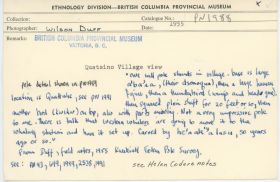 ETHNOLOGY DIVISION—BRITISH COLUMBIA PROVINCIAL MUSEUM
Collection: Catalogue No.: PN1988
Photographer: Wilson Duff 1955
Remarks: BRITISH COLUMBIA PROVINCIAL MUSEUM
VICTORIA, B.C.
Quatsino Village view
"one tall pole stands in village. base is large
pole detail shown in pn 1989 (their disonoqua), then a large human
location is Quatsino, see PN 1991 figure, then a thunderbird (wings and head gone).
then squared plain shaft for 20 feet or so, then
another bird (kwikw) on top, also with parts missing. Not a very impressive pole
to me. there is talk that western whalers are going to move it to the
whaling station and have it set up. Carved by 50 years
ago or so."
From Duff, field notes, 1955. Kwakiutl Totem Pole Survey.
see: PN 1989, 2538, 1991
see Helen Codere notes